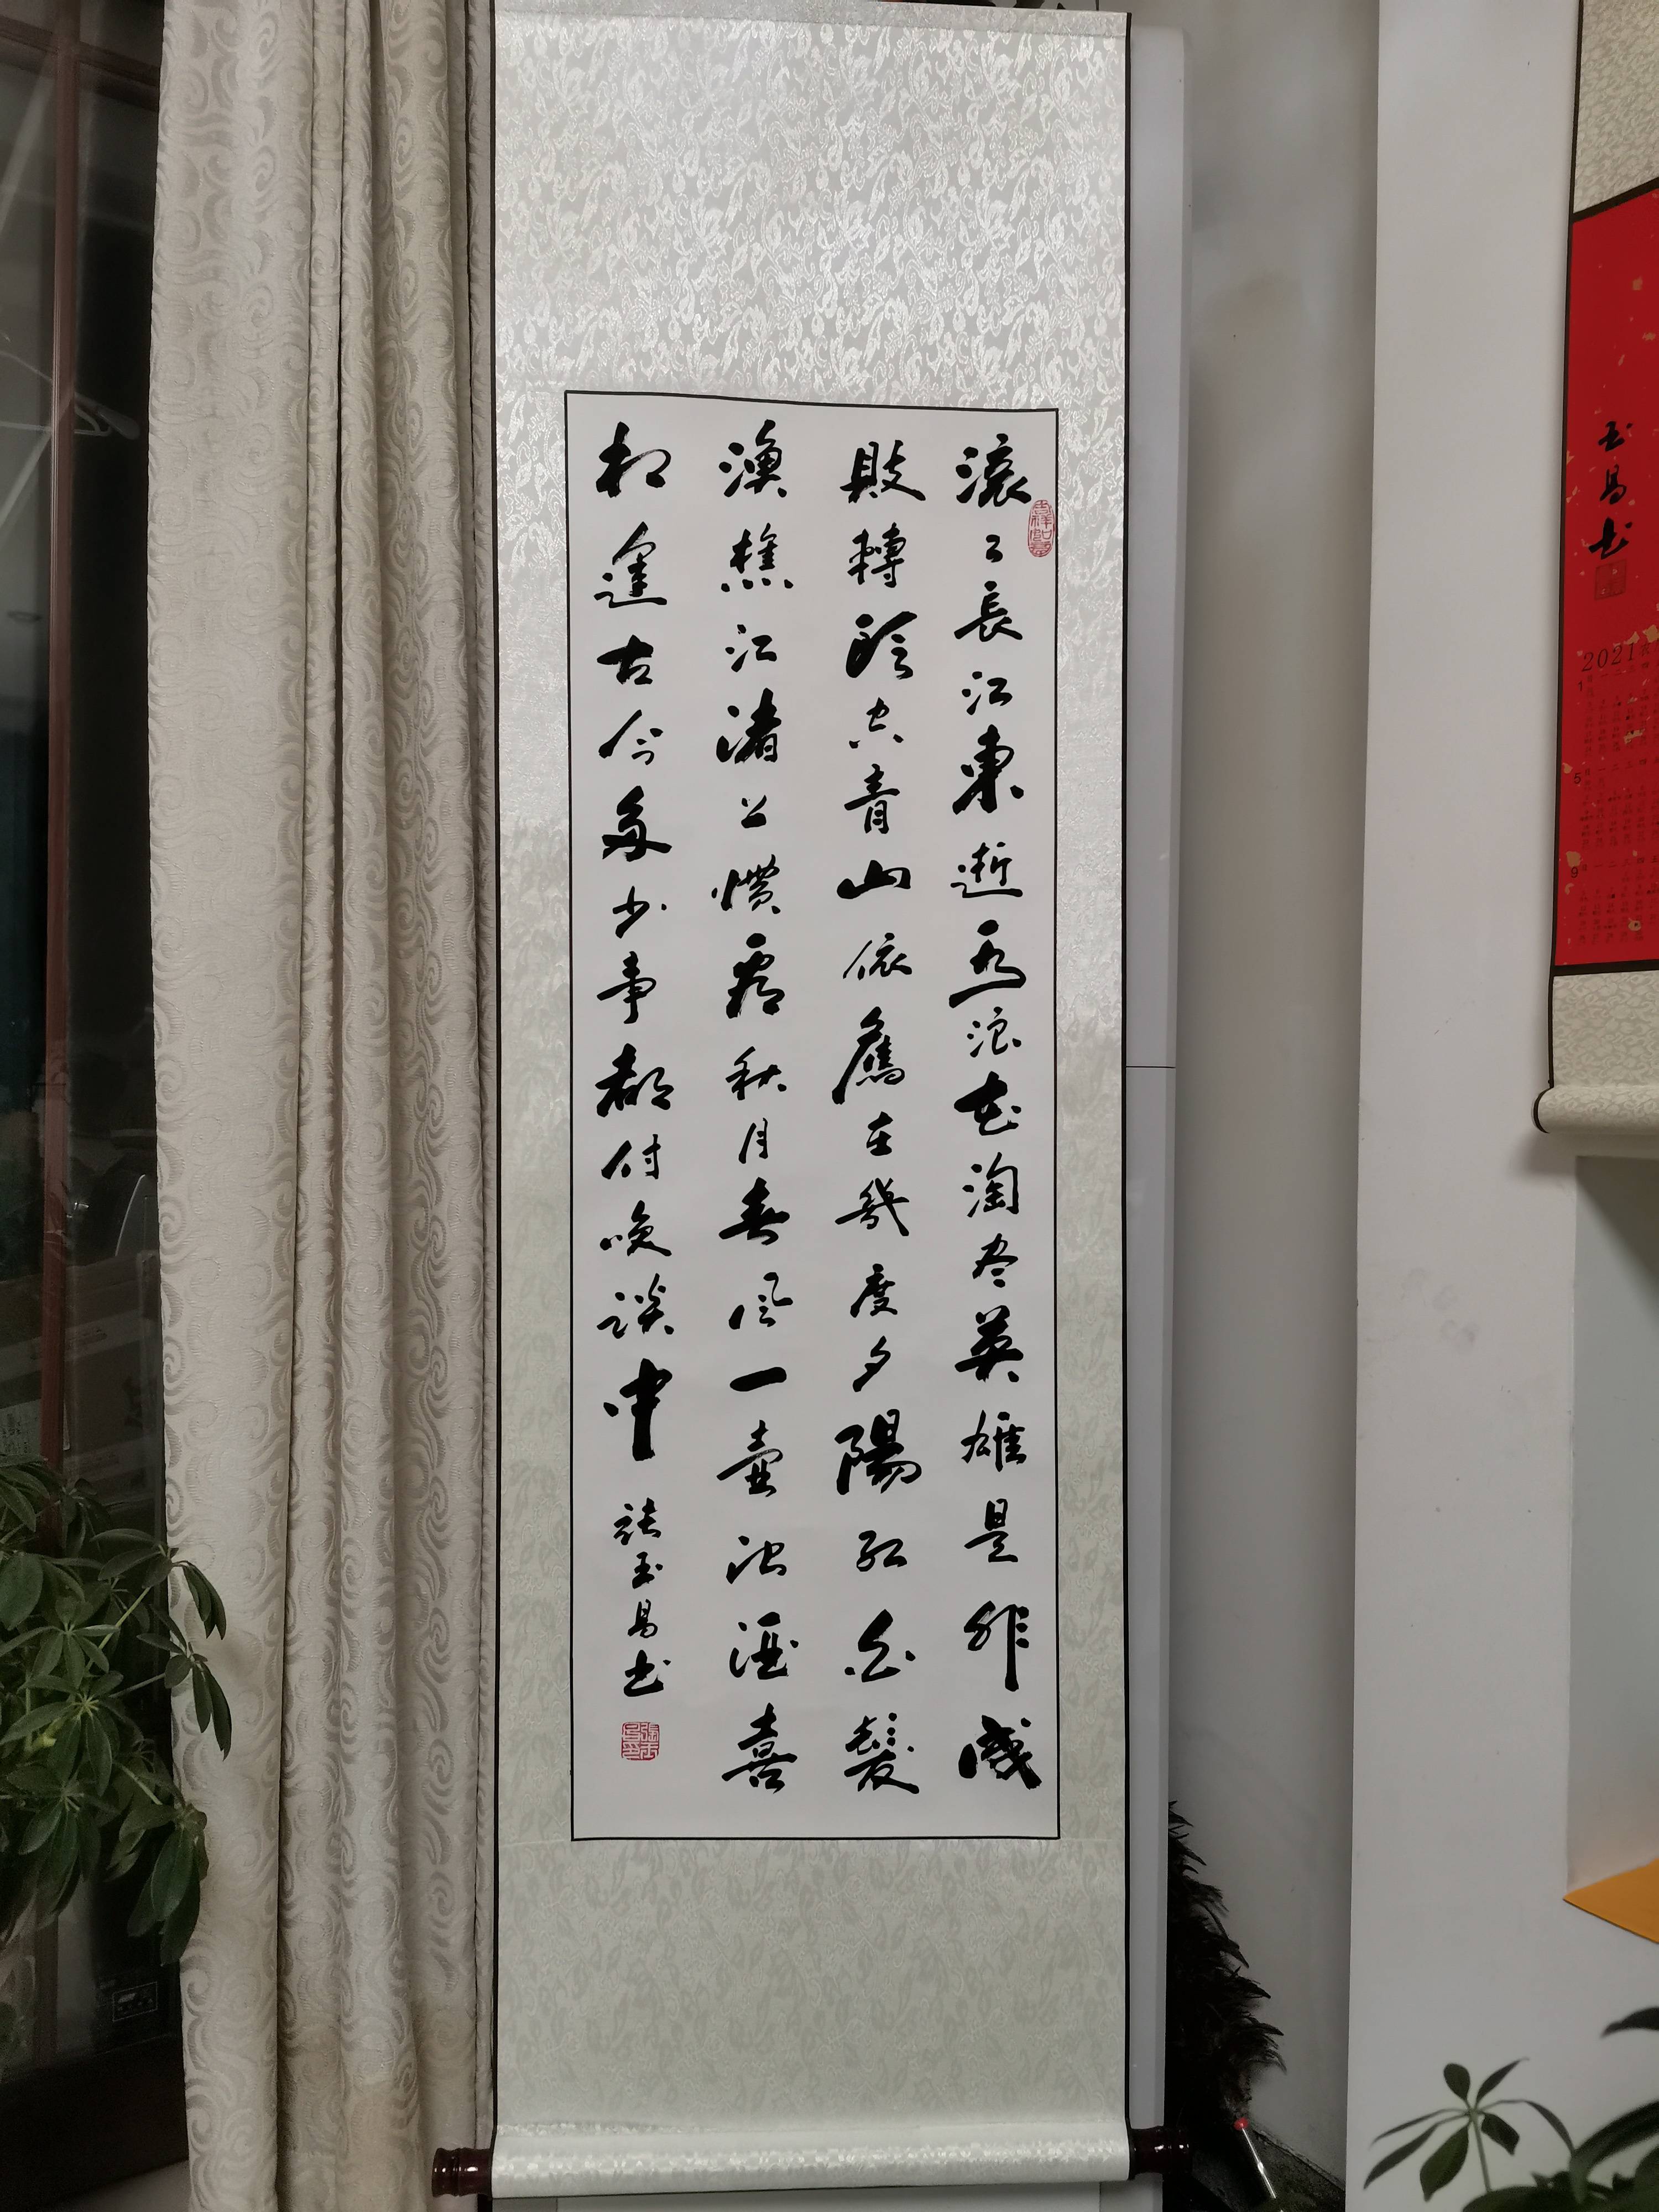 滚々長江東逝水浪花淘尽英雄是非成
敗轉頭空青山依舊在幾度夕陽紅白髮
漁樵江渚上慣看秋月春风一壺浊酒喜
相逢古今多少事都付咲談中
張玉昌书
吉祥如意
玉昌书
2021
1
5
9